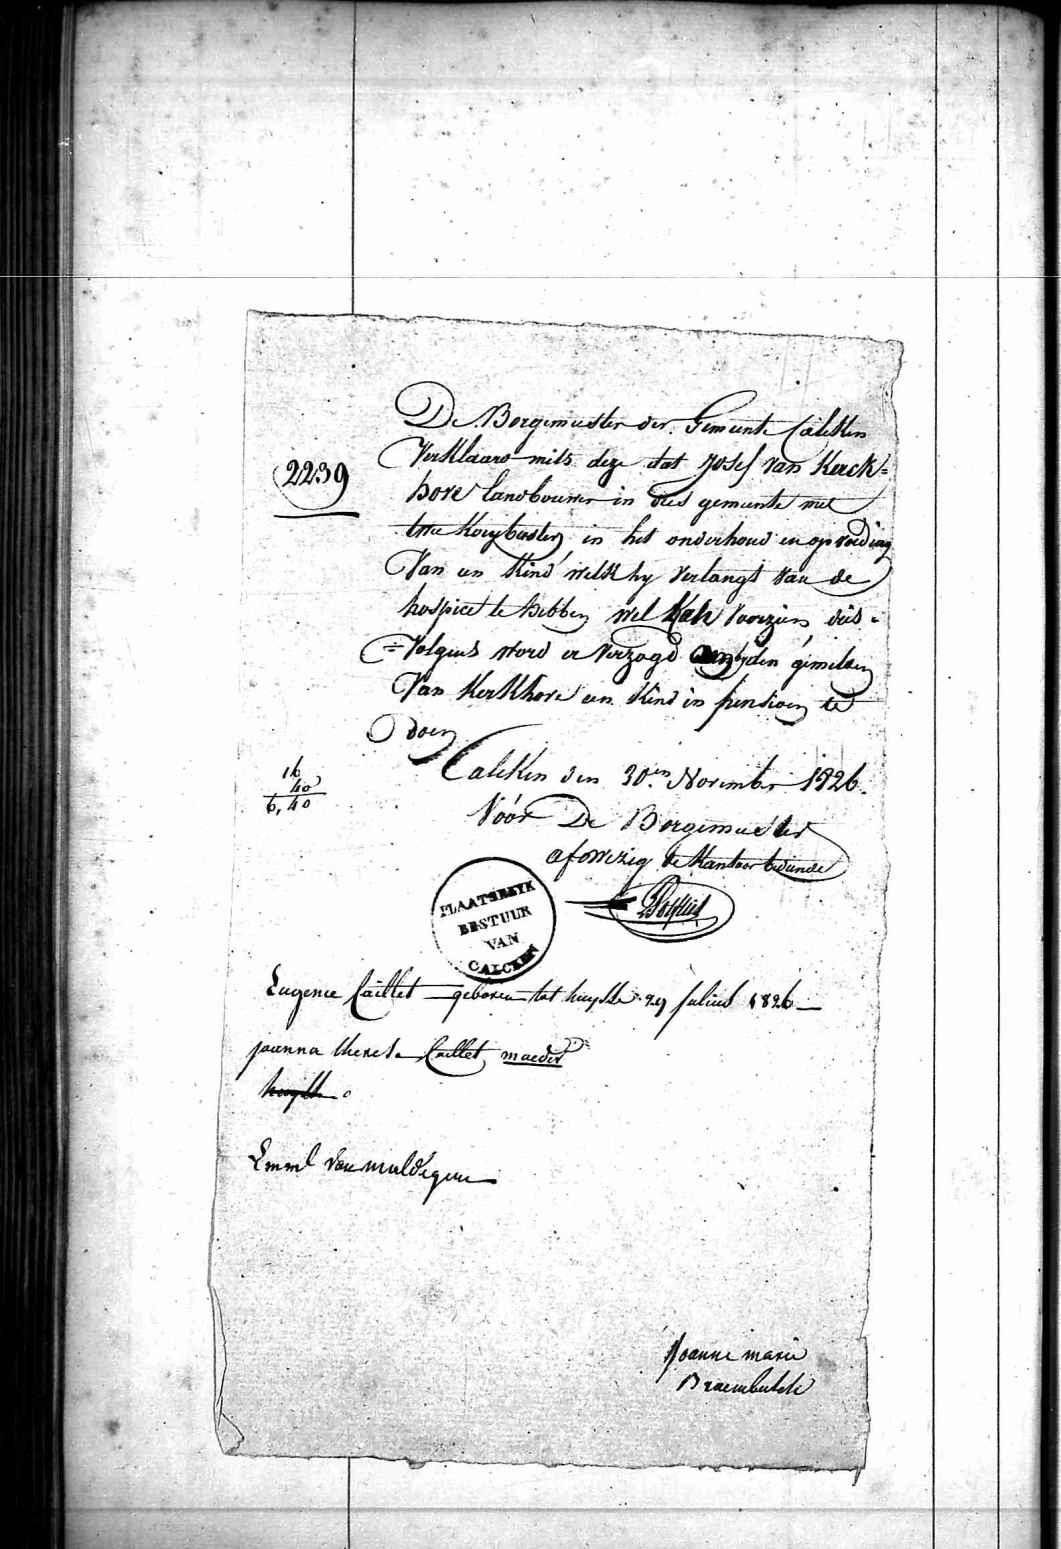 De Borgemeester der Gemeente Calcken
Verklaard mits deze dat Josef Van Kerck=
hove landbouwer in dees gemeente met
twee koeybeesten in het onderhoud en opvoeding
Van een Kind welk hy verlangt van de
hospice te hebben wel kan voorzien, dis=
=Volgens word er verzogd aen den gemelden
Van Kerkhove een Kind in pensioen te
doen
2239
Calcken den 30.en November 1826.
16
40
6,40
Vóór De Borgemeester
afwezig de Kantoor bediende
PLAATSELYK
BESTUUR
VAN
CALCKEN
Eugenie Caillet geboren tot huysse 29 julius 1826
joanna theresa Caillet, moeder
huysse
Emml Van Muldegem
Joanne marie
Braembulck